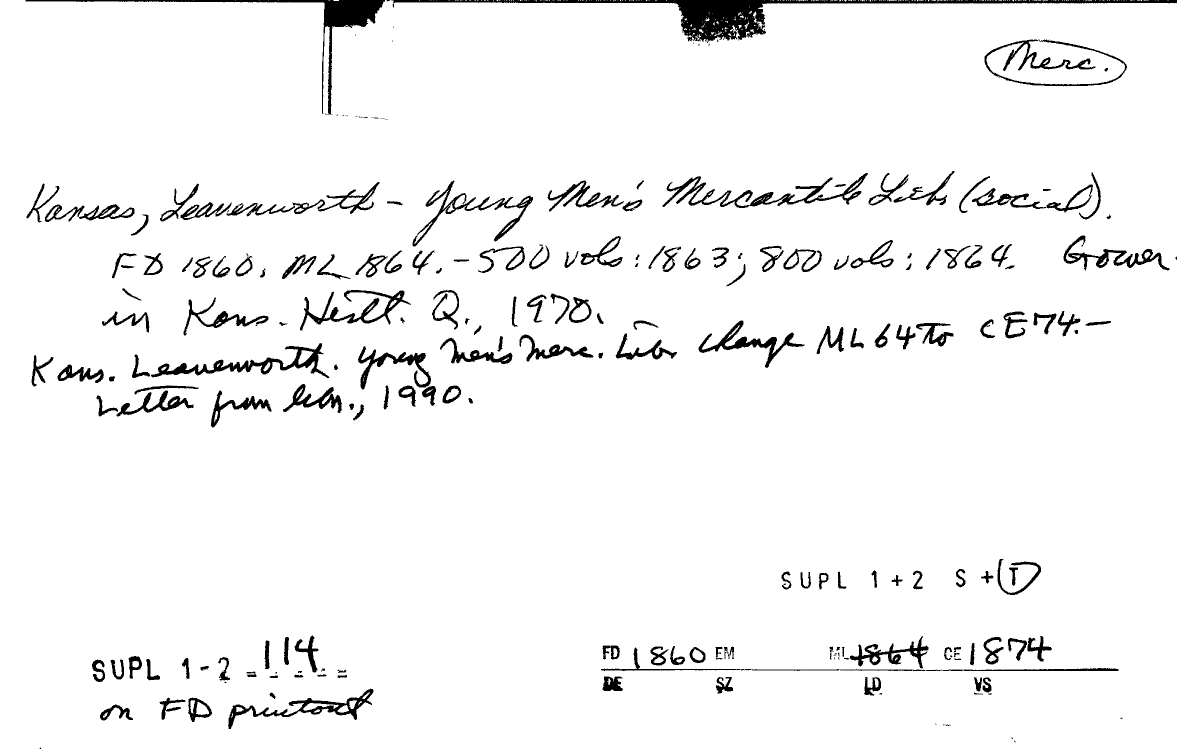 Merc.
Kansas, Leavenworth - Young Men's Mercantile Libr (social).
FD 1860. ML 1864. - 500 vols: 1863; 800 vols: 1864. Gower
in Kans. Histl. Q., 1970.
Kans. Leavenworth. Young Men's Merc. Libr change ML 64 to CE 74. -
Letter from libn., 1990.
SUPL 1+2 S + T
SUPL 1-2 114
on FD printout
FD 1860 EM ML 1864 CE 1874
DE SZ LD VS